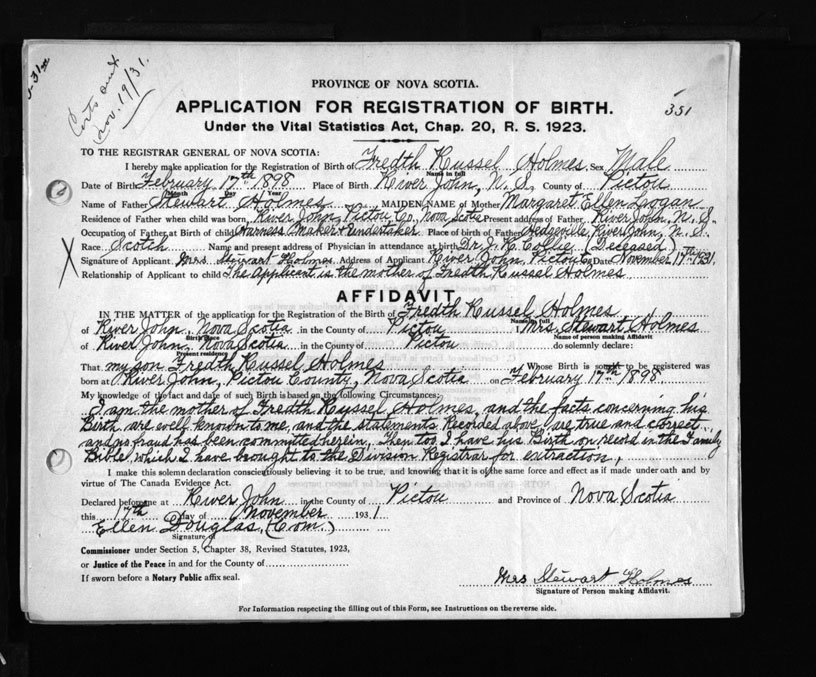 Certs out
Nov. 19/31.
351
PROVINCE OF NOVA SCOTIA.
APPLICATION FOR REGISTRATION OF BIRTH.
Under the Vital Statistics Act, Chap. 20, R. S. 1923.
TO THE REGISTRAR GENERAL OF NOVA SCOTIA:
I hereby make application for the Registration of Birth of Fredth Russel Holmes Sex Male
Name in full
Date of Birth February 17th 1898 Place of Birth River John, N. S. County of Pictou
Month Day Year
Name of Father Stewart Holmes MAIDEN NAME of Mother Margaret Ellen Logan
Residence of Father when child was born River John, Pictou Co, Nova Scotia Present address of Father River John, N. S.
Occupation of Father at Birth of child Harness Maker & Undertaker Place of birth of Father Hedgeville, River John, N. S.
Race Scotch Name and present address of Physician in attendance at birth Dr. J. R. Collie (Deceased)
X Signature of Applicant Mrs Stewart Holmes Address of Applicant River John, Pictou Co, Date November 17th 1931.
Relationship of Applicant to child The Applicant is the mother of Fredth Russel Holmes
AFFIDAVIT
IN THE MATTER of the application for the Registration of the Birth of Fredth Russel Holmes
Name in full
of River John, Nova Scotia in the County of Pictou I Mrs Stewart Holmes
Birth Place Name of person making Affidavit
of River John, Nova Scotia in the County of Pictou do solemnly declare:
Present residence
That my son Fredth Russel Holmes Whose Birth is sought to be registered was
born at River John, Pictou County, Nova Scotia on February 17th 1898.
My knowledge of the fact and date of such Birth is based on the following Circumstances:
I am the mother of Fredth Russel Holmes, and the facts concerning his
Birth are well known to me, and the statements Recorded above are true and correct,
and no fraud has been committed herein, Then too I have his Birth on record in the Family
Bible, which I have brought to the Division Registrar for extraction,
I make this solemn declaration conscientiously believing it to be true, and knowing that it is of the same force and effect as if made under oath and by
virtue of The Canada Evidence Act.
Declared before me at River John in the County of Pictou and Province of Nova Scotia
this 17th day of November 1931
Ellen Douglas, (Com.)
Signature of
Commissioner under Section 5, Chapter 38, Revised Statutes, 1923,
or Justice of the Peace in and for the County of
If sworn before a Notary Public affix seal.
Mrs Stewart Holmes
Signature of Person making Affidavit.
For Information respecting the filling out of this Form, see Instructions on the reverse side.